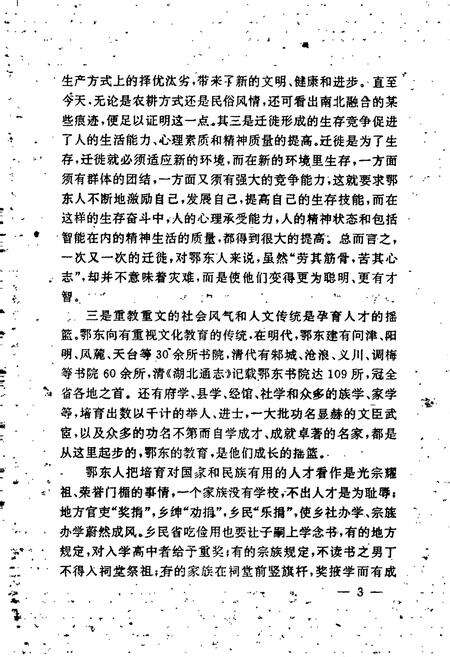 生产方式上的择优汰劣,带来了新的文明、健康和进步。直至
今天、无论是农耕方式还是民俗风情,还可看出南北融合的某
些痕迹,便足以证明这一点。其三是迁徙形成的生存竞争促进
了人的生活能力、心理素质和精神质量的提高。迁徙是为了生
存,迁徙就必须适应新的环境,而在新的环境里生存,一方面
须有群体的团结,一方面又须有强大的竞争能力,这就要求鄂
东人不断地激励自己,发展自己,提高自己的生存技能,而在
这样的生存奋斗中,人的心理承受能力,人的精神状态和包括
智能在内的精神生活的质量,都得到很大的提高。总而言之,
一次又一次的迁徙,对鄂东人来说,虽然“劳其筋骨,苦其心
志”,却并不意味着灾难,而是使他们变得更为聪明、更有才
智。
三是重教重文的社会风气和人文传统是孕育人才的摇
篮。鄂东向有重视文化教育的传统。在明代,鄂东建有问津、阳
明、凤麓、天台等30余所书院,清代有郏城、沧浪、义川、调梅
等书院60余所,清《湖北通志》记载鄂东书院达109所,冠全
省各地之首。还有府学、县学、经馆、社学和众多的族学、家学
等,培育出数以千计的举人、进士,一大批功名显赫的文臣武
官,以及众多的功名不第而自学成才、成就卓著的名家,都是
从这里起步的,鄂东的教育,是他们成长的摇篮。
鄂东人把培育对国家和民族有用的人才看作是光宗耀
祖、荣誉门楣的事情,一个家族没有学校,不出人才是为耻辱;
地方官吏“奖捐”,乡绅“劝捐”,乡民“乐捐”,使乡社办学、宗族
办学蔚然成风。乡民省吃俭用也要让子嗣上学念书,有的地方
规定,对入学高中者给予重奖;有的宗族规定,不读书之男丁
不得入祠堂祭祖;有的家族在祠堂前竖旗杆,奖掖学而有成
— 3 —